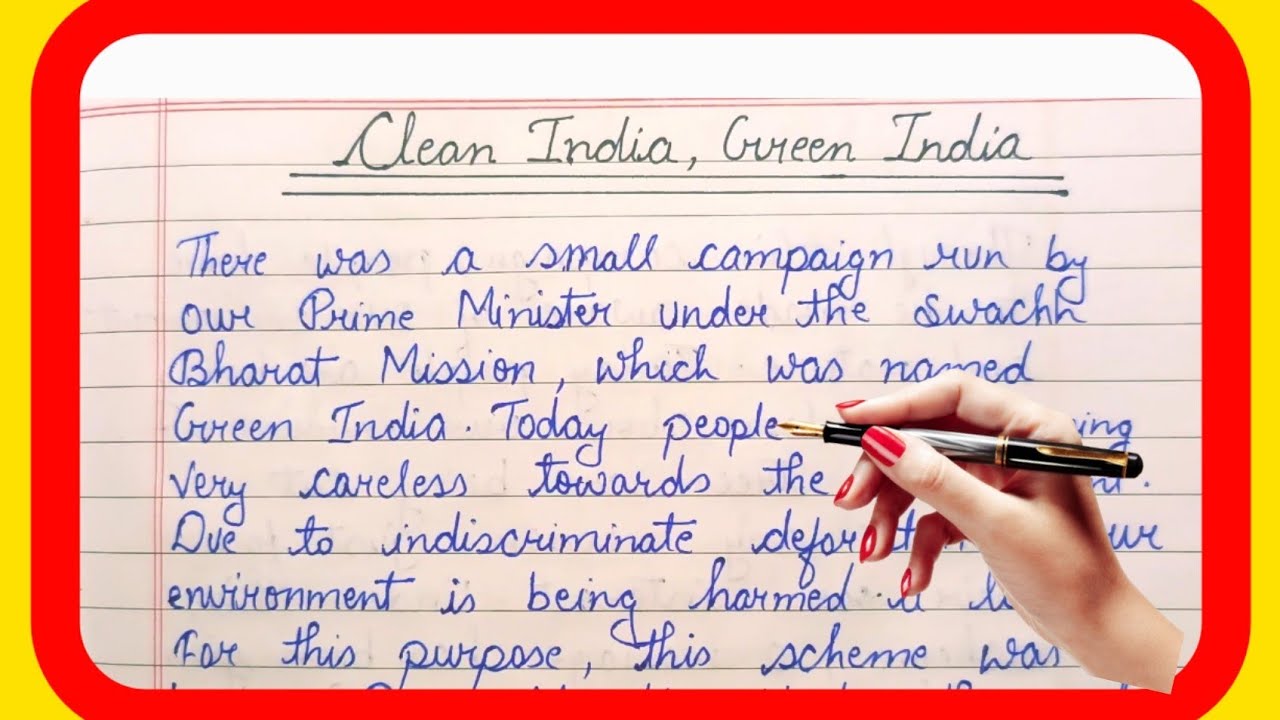 Clean India, Green India
There was a small campaign run by
our Prime Minister under the Swachh
Bharat Mission, which was named
Green India. Today people
very careless towards the
Due to indiscriminate
environment is being harmed
For this purpose, this scheme was